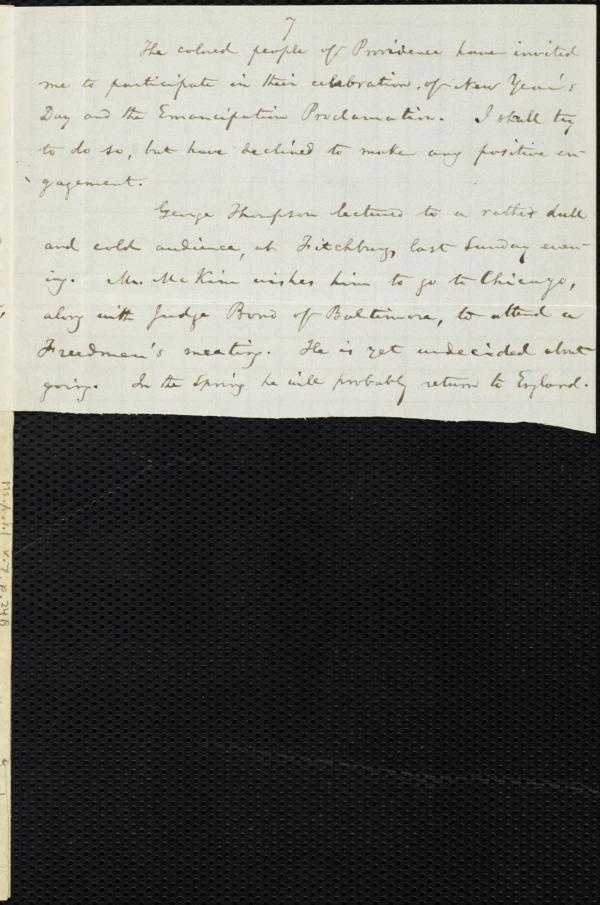 7
The colored people of Providence have invited
me to participate in their celebration, of New Year's
Day and the Emancipation Proclamation. I shall try
to do so, but have declined to make any positive en-
gagement.
George Thompson lectured to a rather dull
and cold audience, at Fitchburg, last Sunday even-
ing. Mr. McKim wishes him to go to Chicago,
along with Judge Bond of Baltimore, to attend a
Freedmen's meeting. He is yet undecided about
going. In the Spring he will probably return to England.
Ms.A.1.1 v.7, p.24B